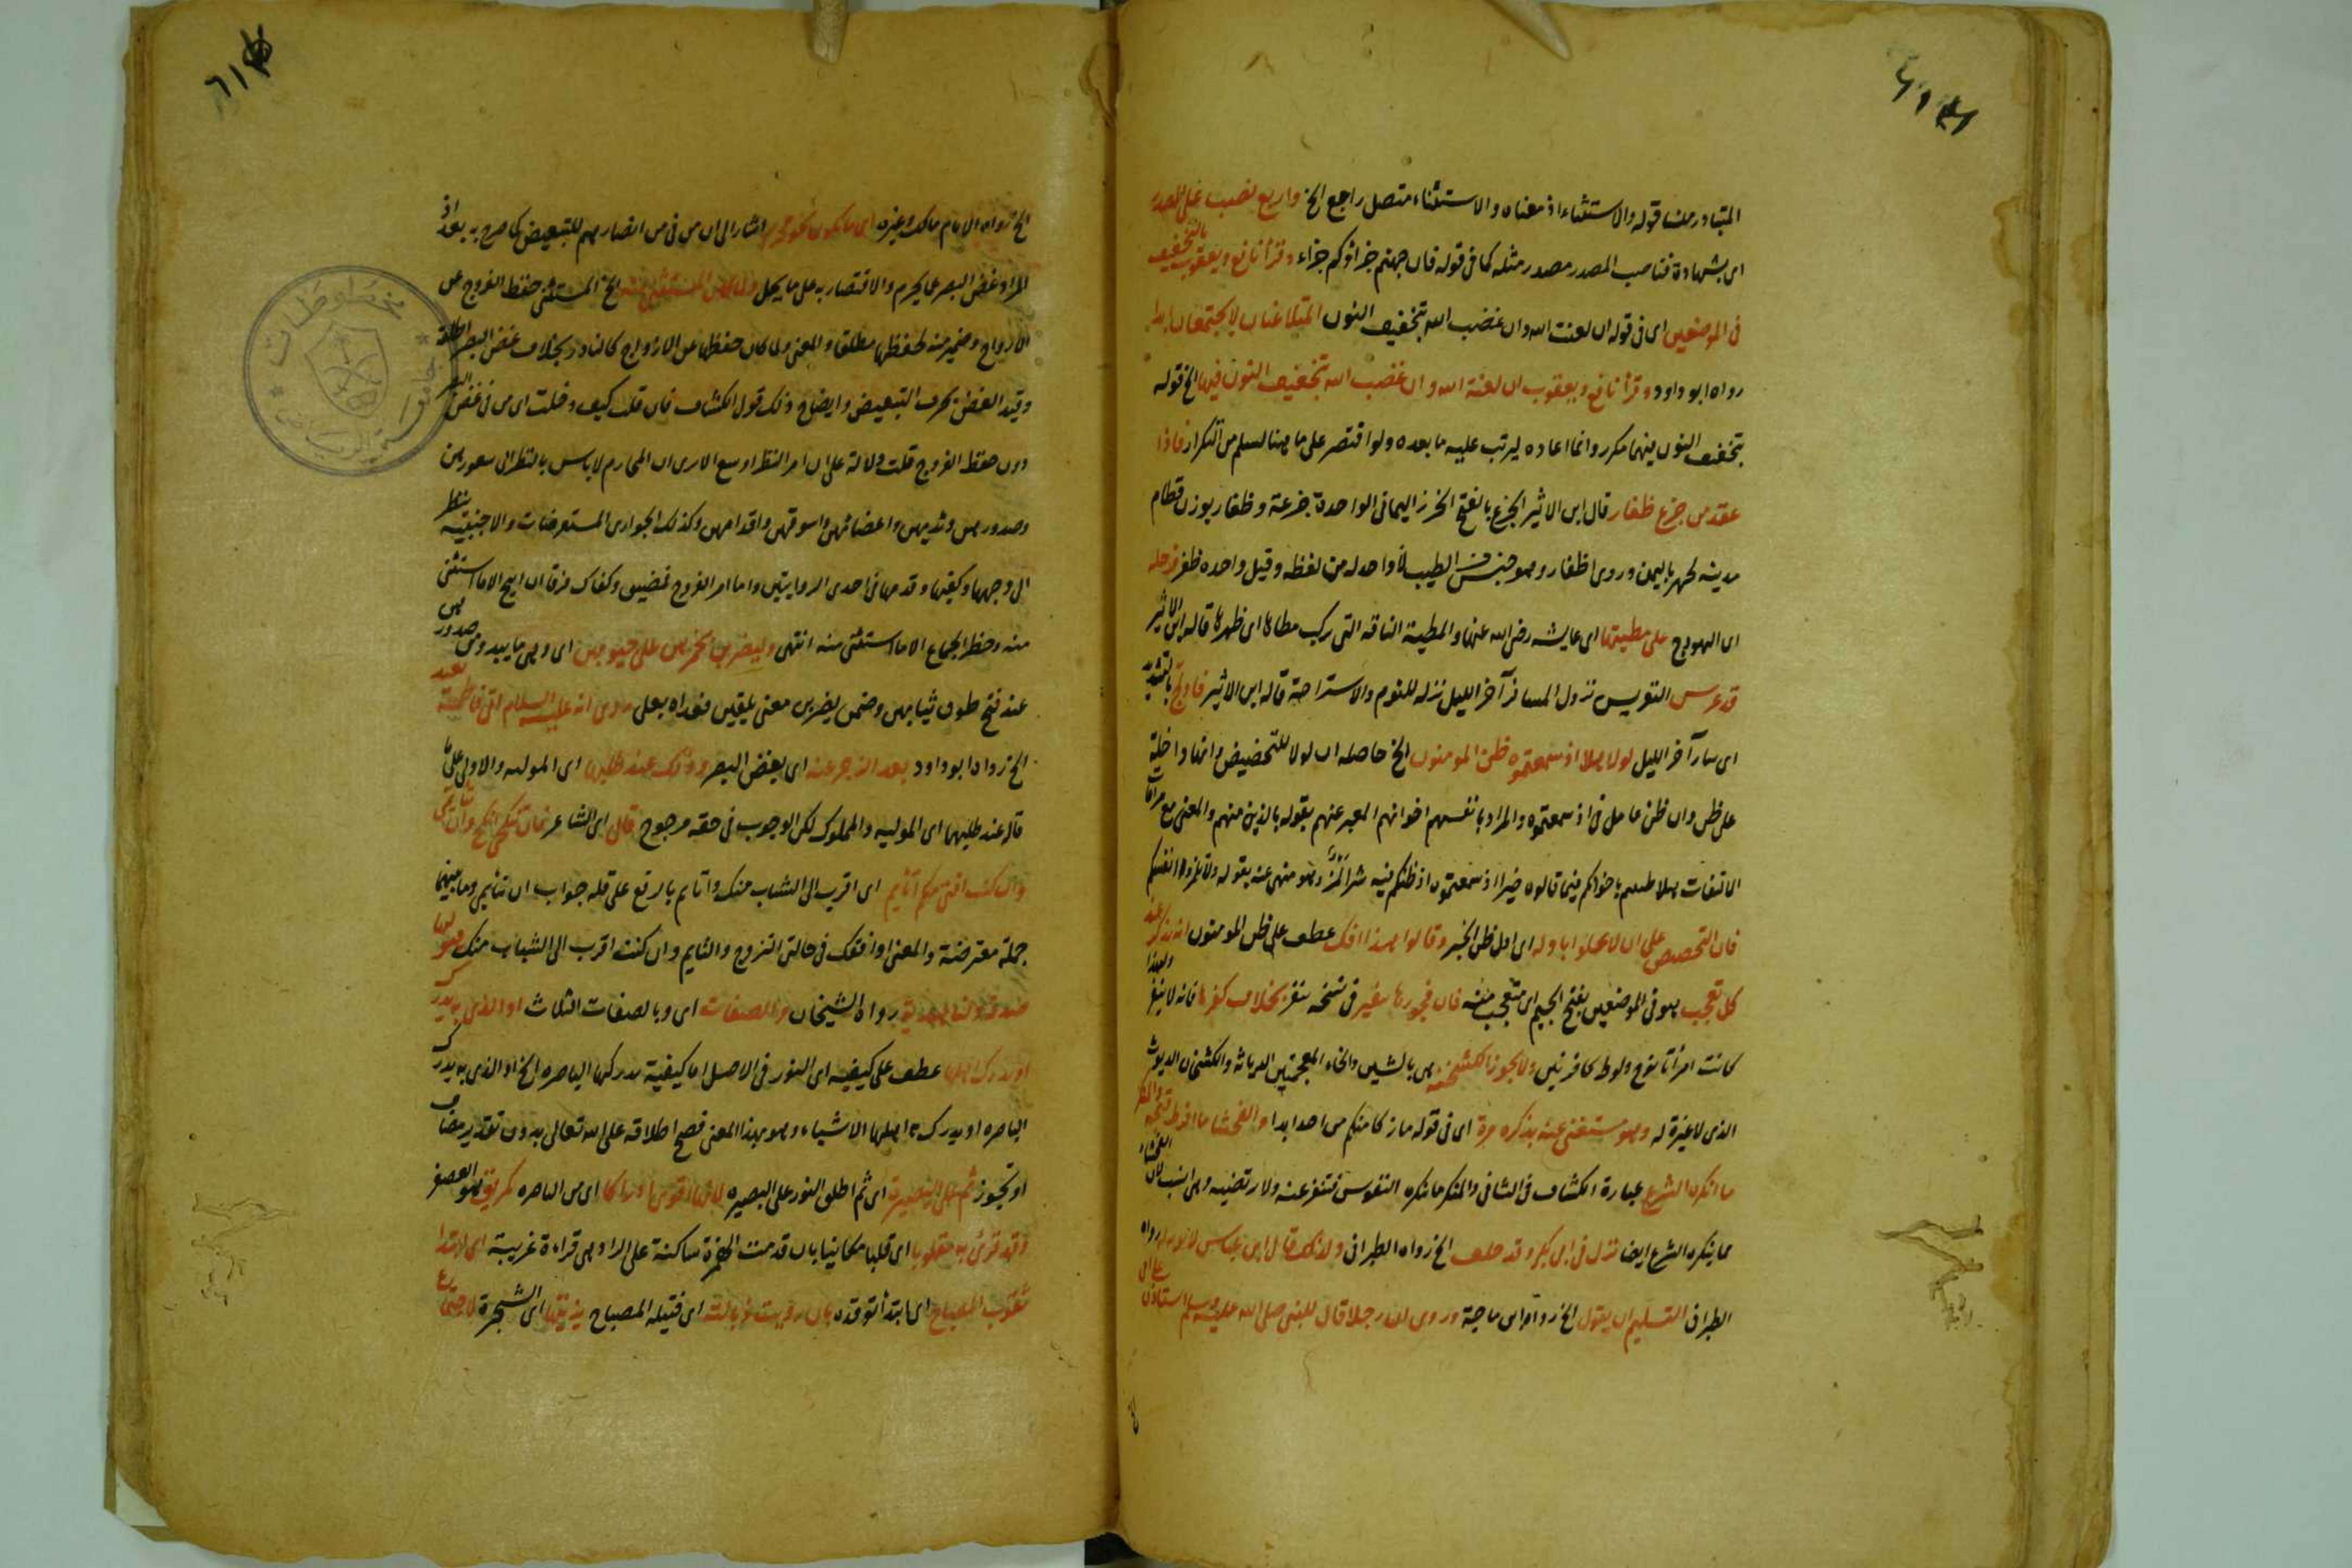 المتبادر من قوله والاستثناء اذ معناه والاستثناء متصل راجع الخ واربع نصب على المصدر
اى بشهادة فناصب المصدر مصدر مثله كما فى قوله فان جهنم جزاؤكم جزاء وقرأ نافع ويعقوب بالتخفيف
فى الموضعين اى فى قوله ان لعنت الله وان غضب الله بتخفيف النون المتلاعنان لا يجتمعان ابدا
رواه ابو داود وقرأ نافع ويعقوب ان لعنة الله وان غضب الله بتخفيف النون فيهما الخ قوله
بتخفيف النون فيهما مكرر وانما اعاده ليرتب عليه ما بعده ولو اقتصر على ما هنا لسلم من التكرار فاذا
عقد من جزع ظفار قال ابن الاثير الجزع بالفتح الخرز اليمانى الواحدة جزعة وظفار بوزن قطام
مدينة لحمير باليمن وروى اظفار وهو جنس من الطيب لا واحد له من لفظه وقيل واحده ظفر فرحله
اى الهودج على مطيتها اى عايشه رضى الله عنها والمطية الناقه التى يركب مطاها اى ظهرها قاله ابن الاثير
قد عرس التعريس نزول المسافر آخر الليل نزله للنوم والاستراحة قاله ابن الاثير فادلج بالتشديد
اى سار آخر الليل لولا هلا اذ سمعتموه ظن المومنون الخ حاصله ان لولا للتحضيض وانها داخلة
على ظن وان ظن عامل فى اذ سمعتموه والمراد بانفسهم اخوانهم المعبر عنهم بقوله بالذين منهم والمعنى مع مراعاة
الالتفات هلا ظننتم باخوانكم فيما قالوه خيرا اذ سمعتموه اذ ظنكم فيه شرا لمز وهو منهى عنه بقوله ولا تلمزوا انفسكم
فان التحضيض على ان لا يخلوا باوله اى اول ظن الخير وقالوا هذا افك عطف على ظن المومنون انه يذكر عند
كل تعجب هو فى الموضعين بفتح الجيم اى متعجب منه فان فجورها ينفر فى نسخه تنفر بخلاف كفرها فانه لا ينفر ولهذا
كانت امرأتا نوح ولوط كافرتين ولا يجوز الكشخنة هى بالشين والخاء المعجمتين الدياثه والكشخان الديوث
الذى لا غيرة له وهو مستغنى عنه بذكره مرة اى فى قوله ما زكا منكم من احد ابدا والفحشا ما افرط قبحه والمنكر
ما انكره الشرع عبارة الكشاف فى الثانى والمنكر ما تنكره النفوس فتنفر عنه ولا ترتضيه وهى انسب لان الفحشاء
مما ينكره الشرع ايضا نزل فى ابى بكر وقد حلف الخ رواه الطبرانى ولذلك قال ابن عباس رواه
الطبرانى التسليم ان يقول الخ رواه ابن ماجة وروى ان رجلا قال للنبى صلى الله عليه وسلم استاذن على امى
الخ رواه الامام مالك وغيره اى ما يكون نحو محرم اشار الى ان من فى من ابصارهم للتبعيض كما صرح به بعد اذ
المراد غض البصر عما يحرم والاقتصار به على ما يحل ولما كان المستثنى منه الخ المستثنى حفظ الفروج عن
الازواج وضمير منه لحفظها مطلقا والمعنى ولما كان حفظها عن الازواج كالنادر بخلاف غض البصر اطلقه
وقيد الغض بحرف التبعيض وايضاح ذلك قول الكشاف فان قلت كيف دخلت اى من فى غض البصر
دون حفظ الفروج قلت دلالة على ان امر النظر اوسع الا ترى ان المحارم لا باس بالنظر الى شعورهن
وصدورهن وثديهن واعضائهن واسوقهن واقدامهن وكذلك الجوارى المستعرضات والاجنبية ينظر
الى وجهها وكفيها وقدمها فى احدى الروايتين واما امر الفروج فمضيق وكفاك فرقا ان ابيح الا ما استثنى
منه وحظر الجماع الا ما استثنى منه انتهى وليضربن بخمرهن على جيوبهن اى وهى ما يبدو من صدورهن
عند فتح طوق ثيابهن وضمن يضربن معنى يلقين فعداه بعلى روى انه عليه السلام اتى فاطمة بعبد
الخ رواه ابو داود بعد الزجر عنه اى بغض البصر وذلك عند طلبها اى الموليه والاولى على ما
قاله عند طلبهما اى الموليه والمملوك لكن الوجوب فى حقه مرجوح قال اى الشاعر فان تنكحى انكح وان تتايمى
وان كنت افتى منكم اتأيم اى اقرب الى الشباب منك واتايم بالرفع على قلة جواب ان تتأيمى وما بينهما
جملة معترضة والمعنى اوافقك فى حالتى التزوج والتايم وان كنت اقرب الى الشباب منك وهو لها
صدقة ولنا هدية رواه الشيخان والصفات اى وبالصفات الثلاث او الذى به يدرك
او يدرك اهلها عطف على كيفية اى النور فى الاصل اما كيفية تدركها الباصره الخ او الذى به يدرك
الباصره او يدرك به اهلها الاشياء وهو بهذا المعنى فصح اطلاقه على الله تعالى بدون تقدير مضاف
او تجوز ثم على البصيرة اى ثم اطلق النور على البصيره لانها اقوى ادراكا اى من الباصره كمريق هو العصفر
وقد قرئ به مقلوبا اى قلبا مكانيا بان قدمت الهمزة ساكنة على الراء وهى قراءة غريبة اى ابتدا
ثقوب المصباح اى ابتدأ توقده بان رويت ذبالته اى فتيله المصباح بزيتها اى الشجرة